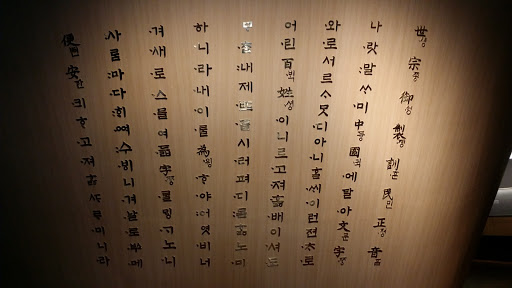 世솅宗조ᇰ御ᅌᅥᆼ製졩訓훈民민正져ᇰ音ᅙᅳᆷ
나랏말ᄊᆞ미中듀ᇰ國귁에달아文문字ᄍᆞᆼ
와로서르ᄉᆞᄆᆞᆺ디아니ᄒᆞᆯᄊᆡ이런젼ᄎᆞ로
어린百ᄇᆡᆨ姓셔ᇰ이니르고져호ᇙ배이셔도
ᄆᆞᄎᆞᆷ내제ᄠᅳ들시러펴디몯ᄒᆞᇙ노미
하니라내이ᄅᆞᆯ為윙ᄒᆞ야어엿비너
겨새로스믈여듧字ᄍᆞᆼᄅᆞᆯᄆᆡᇰᄀᆞ노니
사ᄅᆞᆷ마다ᄒᆡᅇᅧ수ᄫᅵ니겨날로ᄡᅮ메
便뼌安ᅙᅡᆫ킈ᄒᆞ고져ᄒᆞᇙᄯᆞᄅᆞ미니라